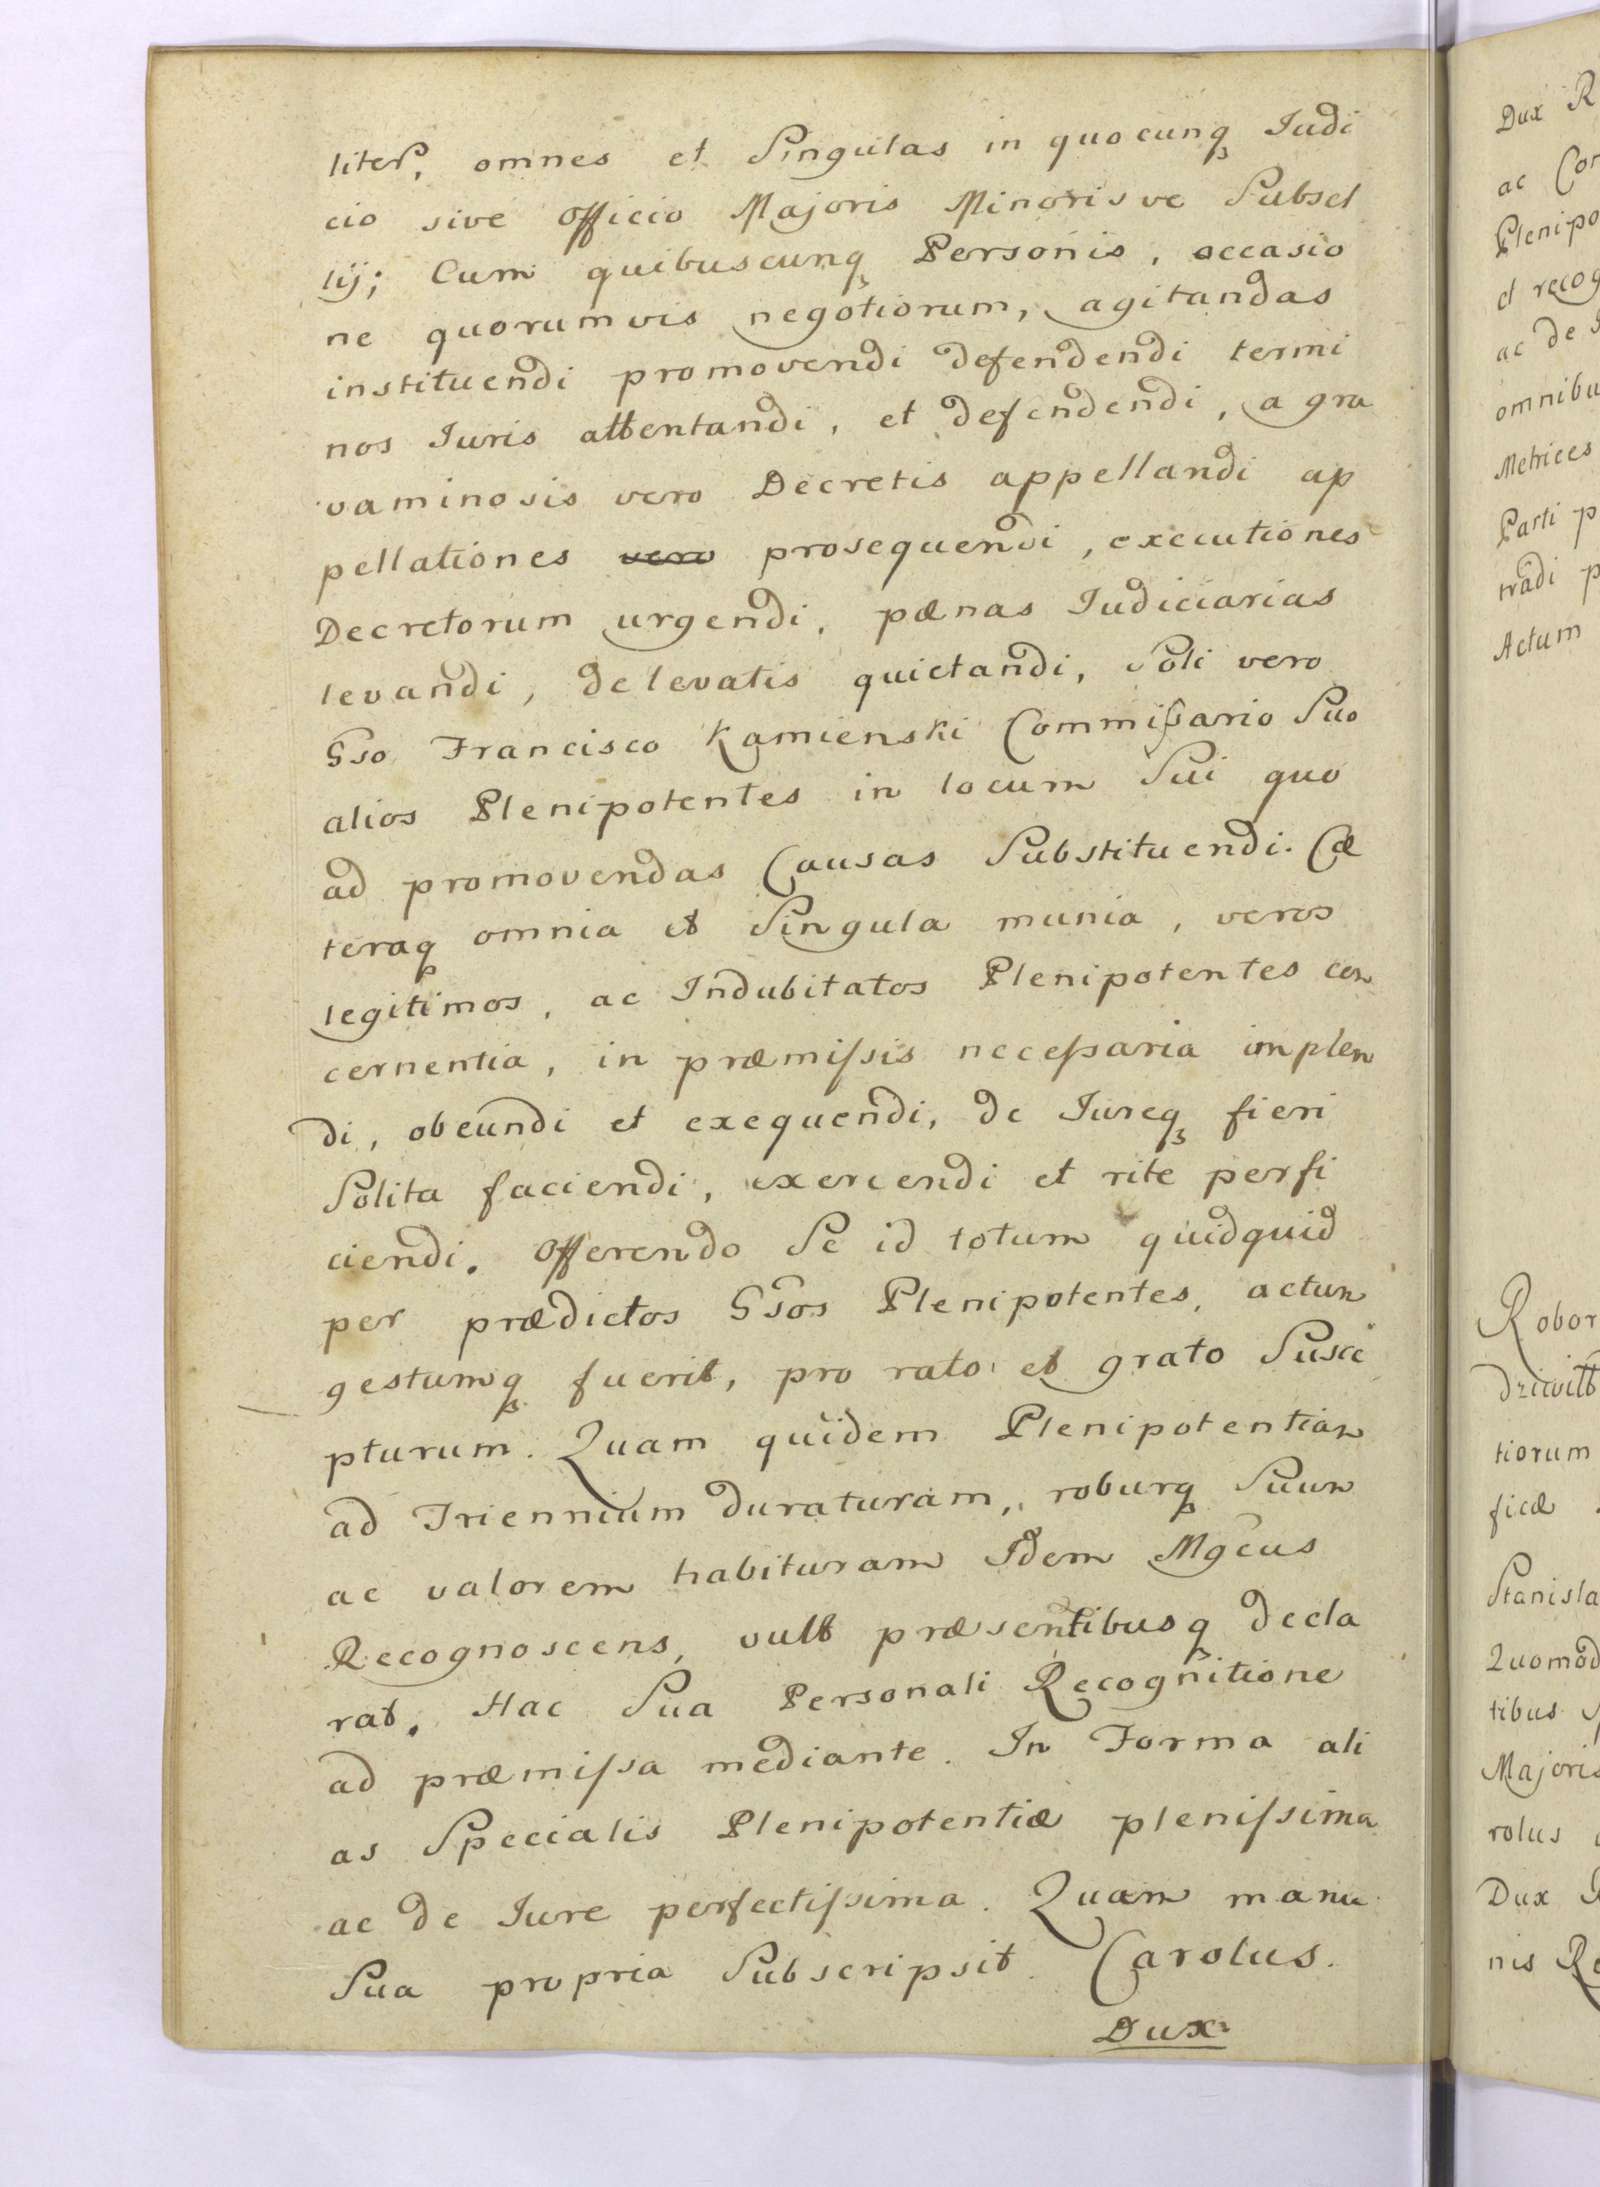 liter, omnes et Singulas in quocunq Iudi
cio sive Officio Majoris Minorisve Subsel
lij; Cum quibuscunq Personis, occasio
ne quorumvis negotiorum, agitandas
instituendi promovendi defendendi termi
nos Iuris attentandi, et defendendi, a gra
vaminosis vero Decretis appellandi ap
pellationes vero prosequendi, executiones
Decretorum urgendi, pænas Iudiciarias
levandi, de levatis quietandi, Soli vero
Gso Francisco Kamienski Commissario Suo
alios Plenipotentes in locum Sui quo
ad promovendas Causas Substituendi. Cæ
teraq omnia et Singula munia, veros
legitimos, ac Indubitatos Plenipotentes con
cernentia, in præmissis necessaria implen
di, obeundi et exequendi, de Iureq fieri
Solita faciendi, exercendi et rite perfi
ciendi. Offerendo Se id totum quidquid
per prædictos Gsos Plenipotentes, actum
gestumq fuerit, pro rato et grato Susce
pturum. Quam quidem Plenipotentiam
ad Triennium duraturam, roburq Suum
ac valorem habituram Idem Mgcus
Recognoscens, vult præsentibusq decla
rat. Hac Sua Personali Recognitione
ad præmissa mediante. In Forma ali
as Specialis Plenipotentiæ plenissima
ac de Iure perfectissima. Quam manu
Sua propria Subscripsit. Carolus.
Dux
Dux R
ac Con
Plenipo
et recog
ac de
omnibu
Metrices
Parti p
tradi p
Actum
Robor
tiorum
ficæ
Stanisla
Quomod
tibus
Majoris
rolus
Dux
nis Re